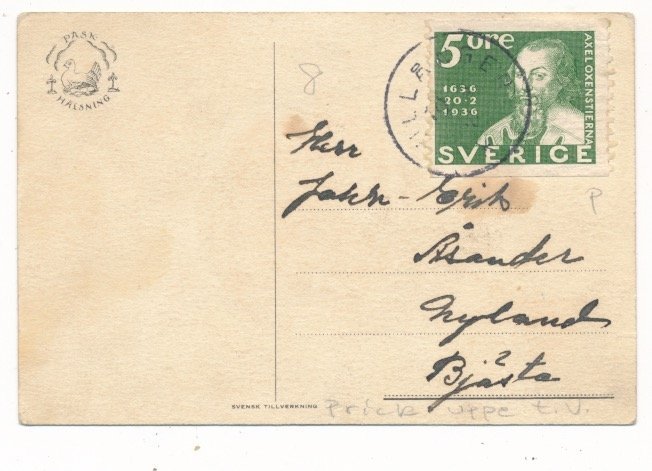 PÅSK
HÄLSNING
8
5 öre
AXEL OXENSTIERNA
1636
20·2
1936
SVERIGE
Herr
John-Erik
Åsander
Nyland
2
Bjästa
P
SVENSK TILLVERKNING
Prick uppe t.v.